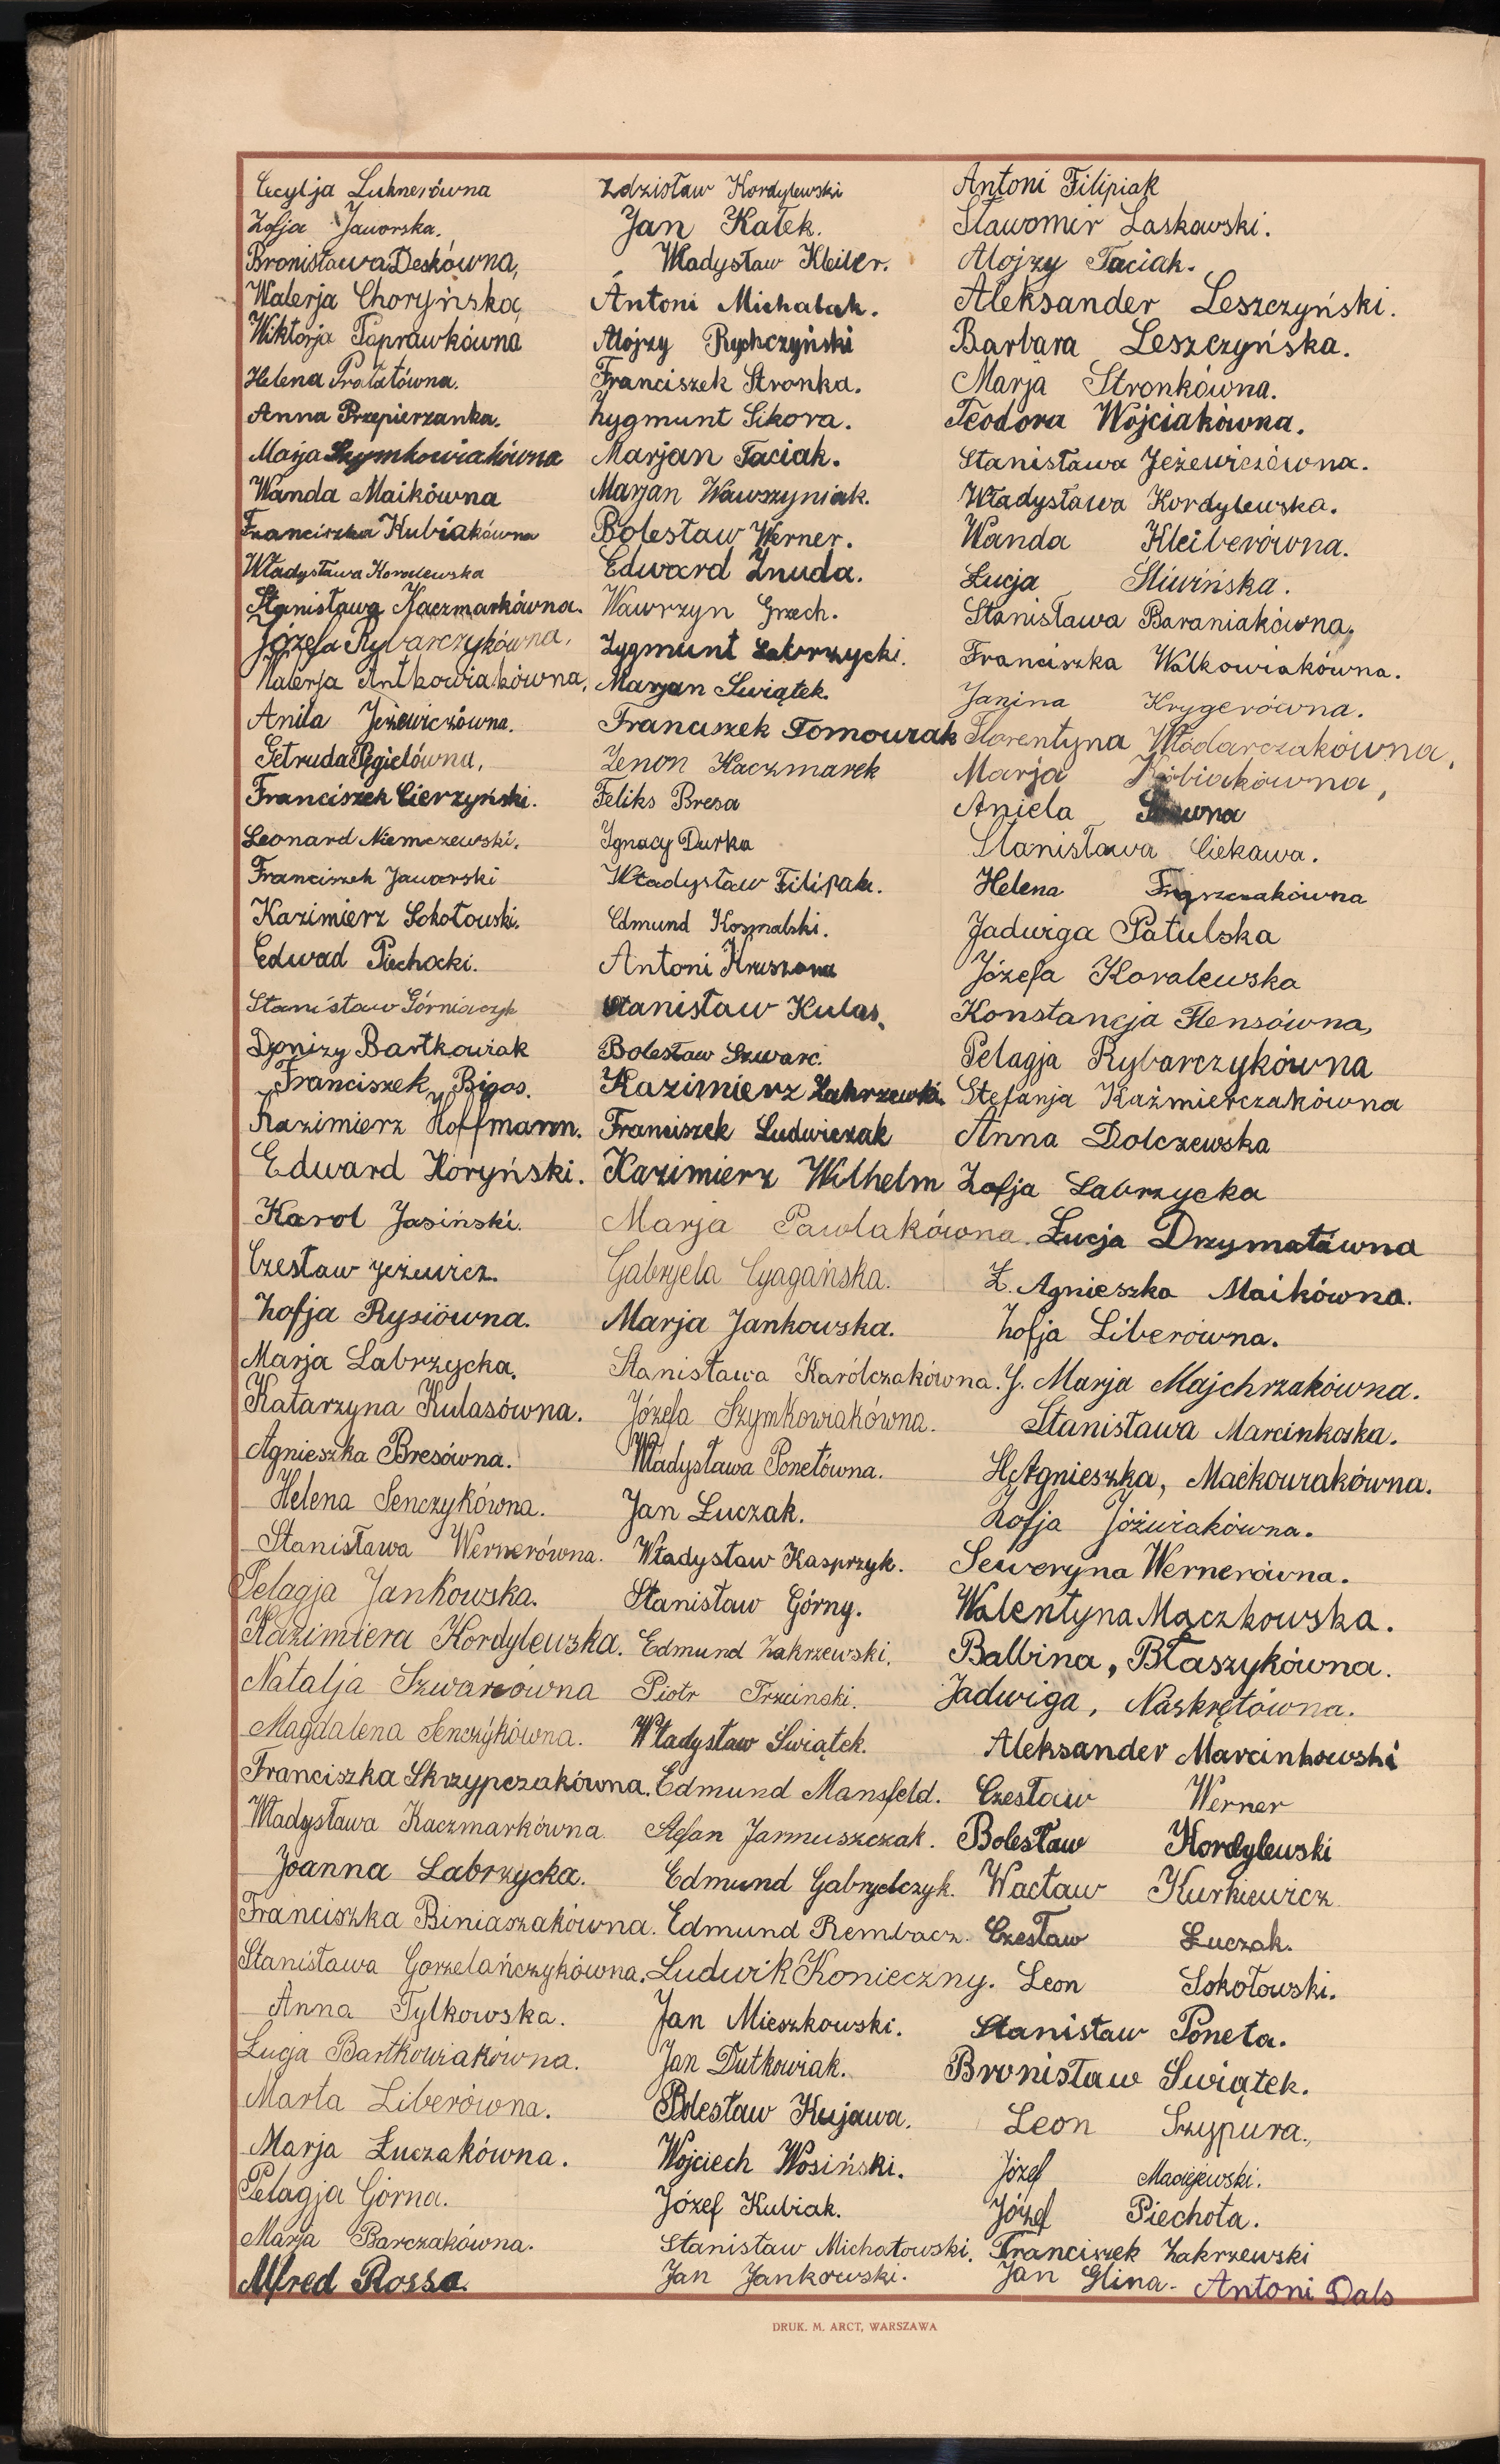 Cecylja Luknerówna
Zofja Jaworska.
Bronisława Deskówna,
Walerja Choryńska,
Wiktorja Poprawkówna
Helena Prałatówna.
Anna Przepierzanka.
Marja Szymkowiakówna
Wanda Maikówna
Franciszka Kubiakówna
Władysława Koralewska
Stanisława Kaczmarkówna.
Józefa Rybarczykówna,
Walerja Antkowiakówna,
Anila Jeżewiczówna.
Getruda Pegielówna,
Franciszek Cierzyński.
Leonard Niemczewski.
Franciszek Jaworski
Kazimierz Sokołowski.
Edwad Piechocki.
Stanisław Górniaczyk
Dyonizy Bartkowiak
Franciszek Bigos.
Kazimierz Hoffmann.
Edward Koryński.
Karol Jasiński.
Czesław Jeżewicz.
Zofja Rysiówna.
Marja Labrzycka.
Katarzyna Kulasówna.
Agnieszka Bresówna.
Helena Senczykówna.
Stanisława Wernerówna.
Pelagja Jankowska.
Kazimiera Kordylewska.
Natalja Szwarcówna
Magdalena Senczykówna.
Franciszka Skrzypczakówna.
Władysława Kaczmarkówna.
Joanna Labrzycka.
Franciszka Biniaszakówna.
Stanisława Gorzelańczykówna.
Anna Tylkowska.
Łucja Bartkowiakówna.
Marta Liberówna.
Marja Łuczakówna.
Pelagja Górna.
Marja Barczakówna.
Alfred Rossa.
Zdzisław Kordylewski
Jan Kałek.
Władysław Kleiber.
Antoni Michalak.
Alojzy Rychczyński
Franciszek Stronka.
Zygmunt Sikora.
Marjan Taciak.
Marjan Wawrzyniak.
Bolesław Werner.
Edward Żnuda.
Wawrzyn Grzech.
Zygmunt Labrzycki.
Marjan Swiątek.
Franciszek Tomowiak
Zenon Kaczmarek
Feliks Bresa
Ignacy Durka
Władysław Filipiak.
Edmund Kosmalski.
Antoni Kruszona
Stanisław Kulas.
Bolesław Szwarc.
Kazimierz Zakrzewski.
Franciszek Ludwiczak
Kazimierz Wilhelm
Marja Pawlakówna.
Gabryela Cyagańska.
Marja Jankowska.
Stanisława Karólczakówna.
Józefa Szymkowiakówna.
Władysława Ponetówna.
Jan Łuczak.
Władysław Kasprzyk.
Stanisław Górny.
Edmund Zakrzewski.
Piotr Trzcinski.
Władysław Swiątek.
Edmund Mansfeld.
Stefan Jarmuszczak.
Edmund Gabryelczyk.
Edmund Rembacz.
Ludwik Konieczny.
Jan Mieszkowski.
Jan Dutkowiak.
Bolesław Kujawa.
Wojciech Wosiński.
Józef Kubiak.
Stanisław Michałowski.
Jan Jankowski.
Antoni Filipiak
Sławomir Laskowski.
Alojzy Taciak.
Aleksander Leszczyński.
Barbara Leszczyńska.
Marja Stronkówna.
Teodora Wojciakówna.
Stanisława Jeżewiczówna.
Władysława Kordylewska.
Wanda Kleiberówna.
Łucja Sliwińska.
Stanisława Baraniakówna.
Franciszka Walkowiakówna.
Janina Krygerówna.
Florentyna Włódarczakówna,
Marja Kubiakówna,
Aniela
Stanisława Ciekawa.
Helena
Jadwiga Patulska
Józefa Koralewska
Konstancja Flensówna,
Pelagja Rybarczykówna
Stefanja Kaźmierczakówna
Anna Dolczewska
Zofja Labrzycka
Łucja Drzymałówna
Ł. Agnieszka Maikówna.
Zofja Liberówna.
J. Marja Majchrzakówna.
Stanisława Marcinkoska.
H. Agnieszka, Maćkowiakówna.
Zofja Jóźwiakówna.
Seweryna Wernerówna.
Walentyna Maczkowska.
Balbina, Błaszykówna.
Jadwiga, Naskrętówna.
Aleksander Marcinkowski
Czesław Werner
Bolesław Kordylewski
Wacław Kurkiewicz
Czesław Łuczak.
Leon Sokołowski.
Stanisław Poneta.
Bronisław Swiątek.
Leon Szypura.
Józef Maciejewski.
Józef Piechota.
Franciszek Zakrzewski
Jan Glina. Antoni Dals
DRUK. M. ARCT, WARSZAWA